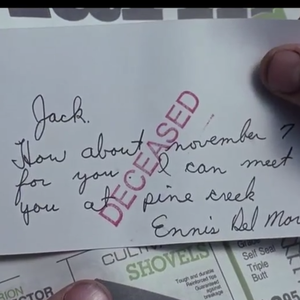 Jack.
How about november 7
for you I can meet
you at pine creek
Ennis Del Mar
DECEASED
SHOVELS
Tough and durable
Reinforced tips
Guaranteed
against
damage
Self
Triple
Butt